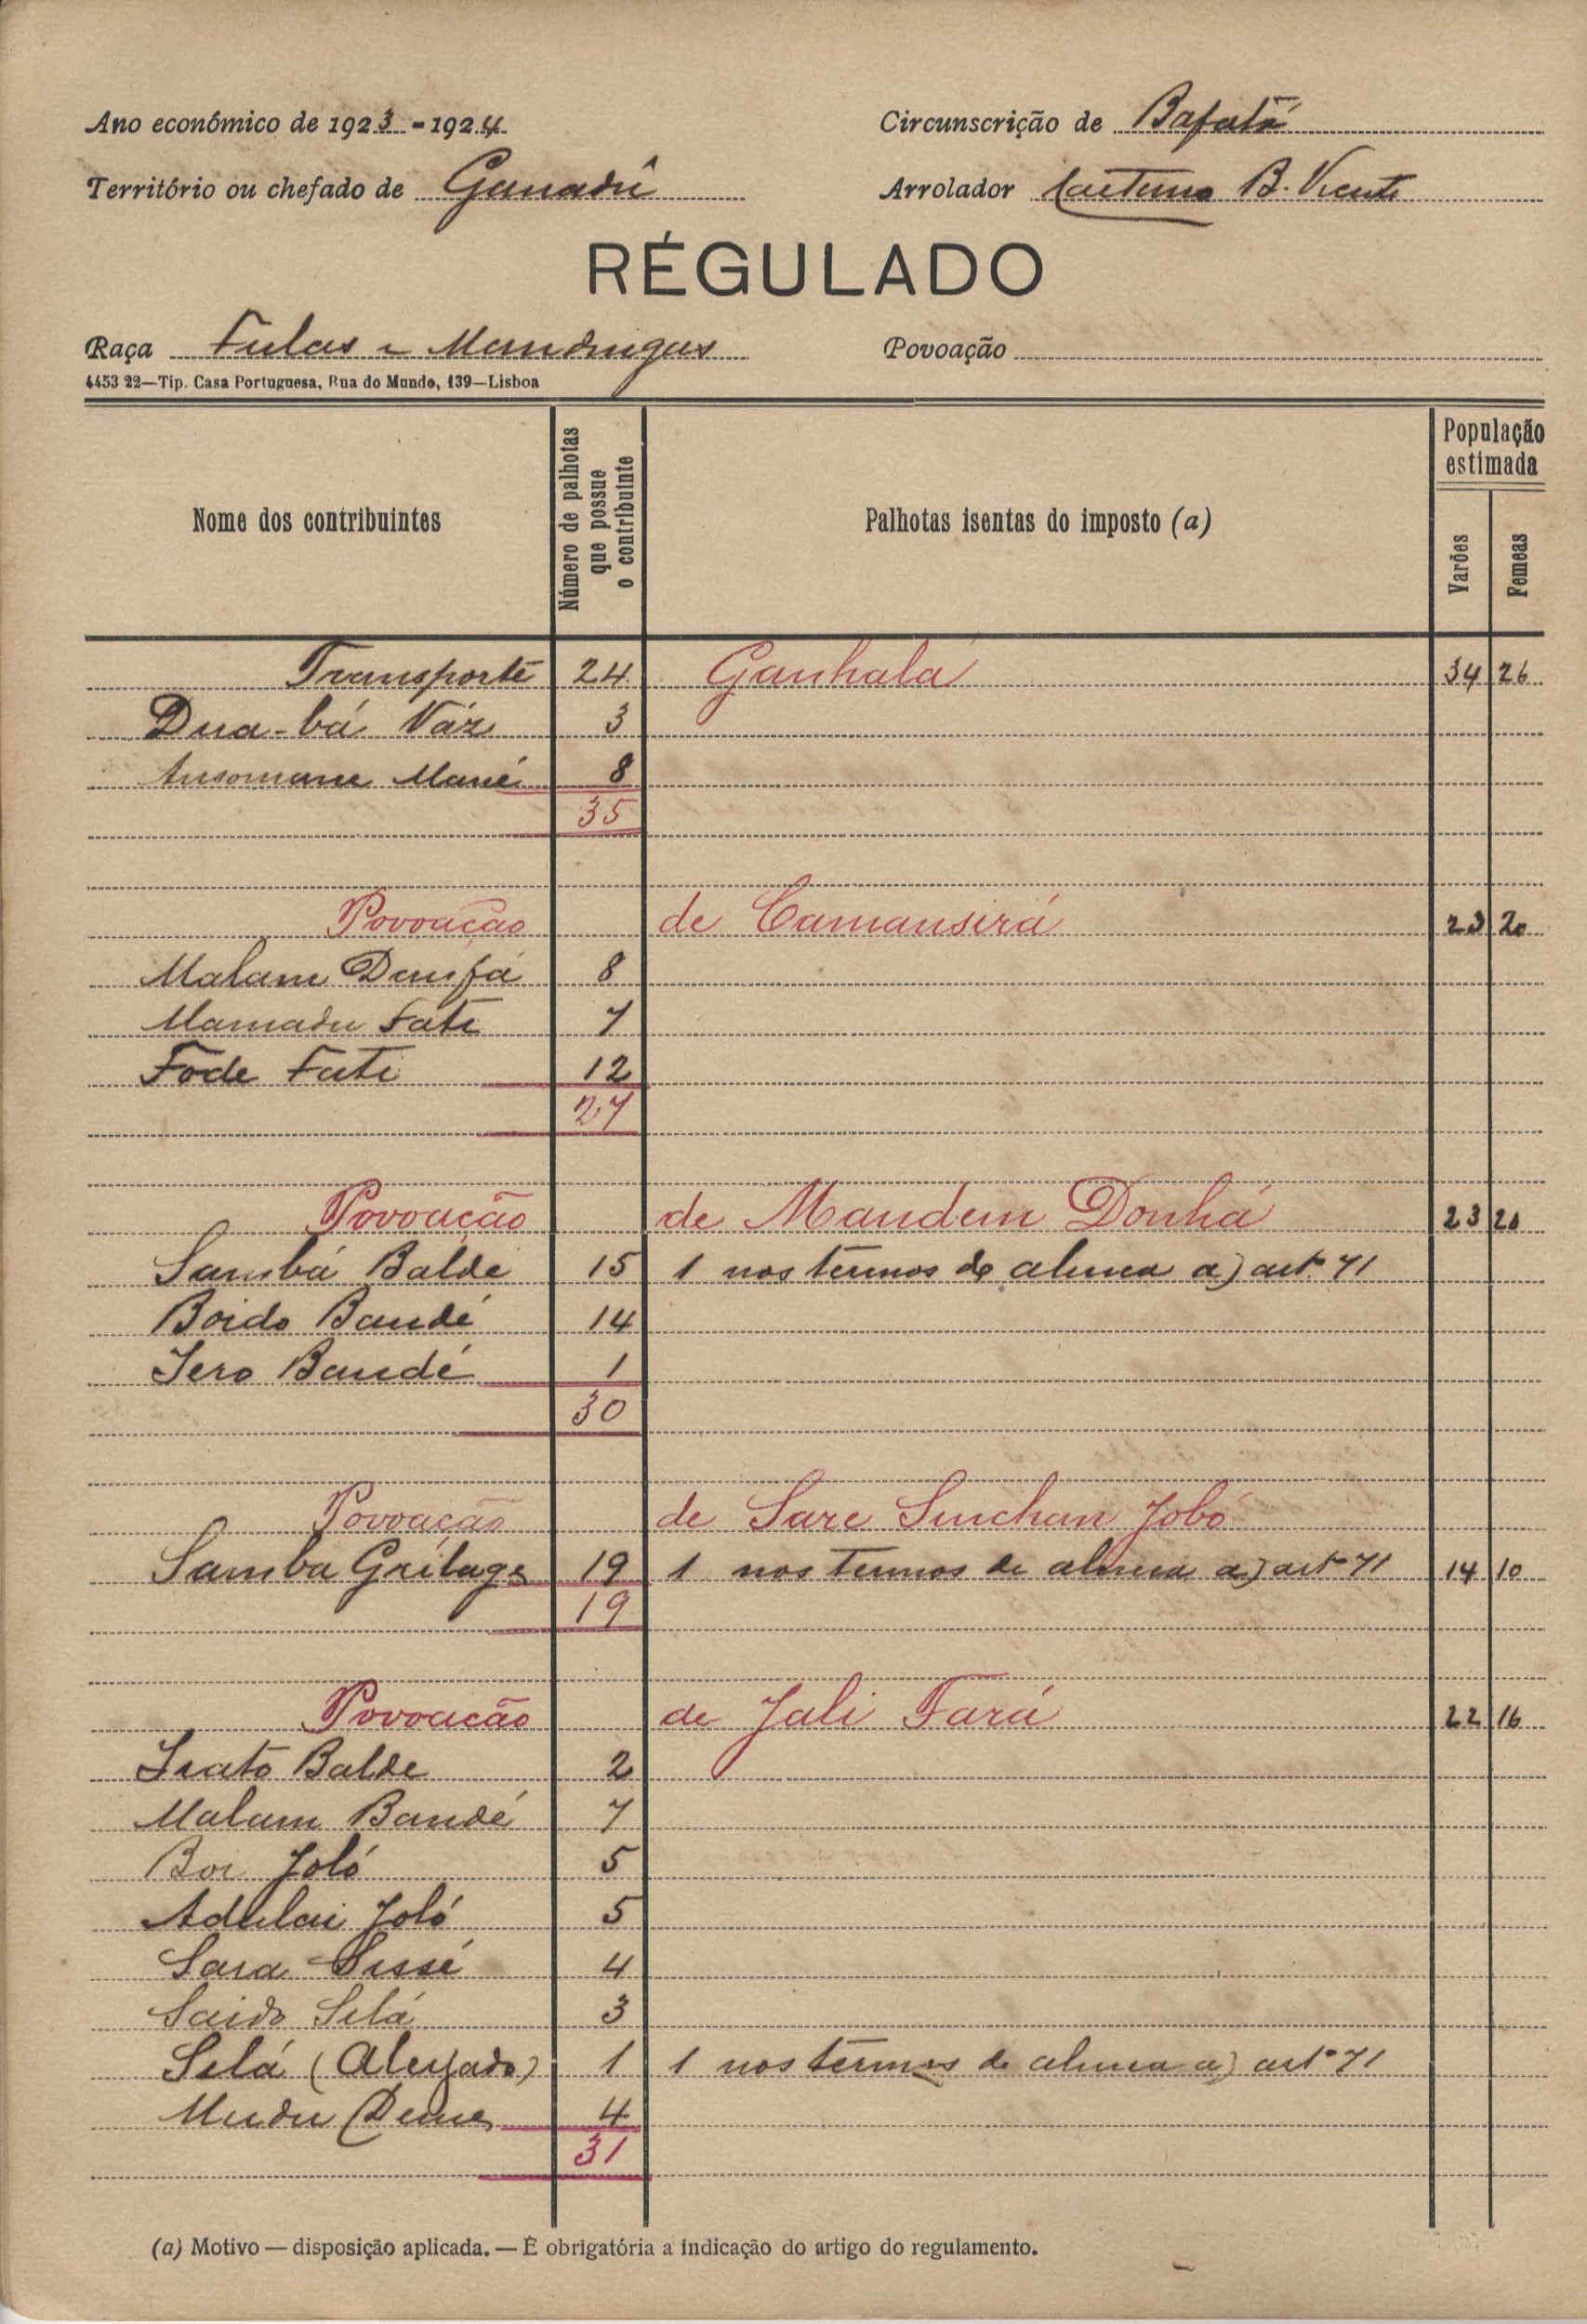 Ano económico de 1923 - 1924 Circunscrição de Bafatá
Território ou chefado de Ganadú Arrolador Caetano B. Vicente
RÉGULADO
Raça Fulas e Mandingas Povoação
4453 22—Tip. Casa Portuguesa, Rua do Mundo, 139—Lisboa
Nome dos contribuintes
Número de palhotas que possue o contribuinte
Palhotas isentas do imposto (a)
População estimada
Varões
Femeas
Transporte 24 Ganhala 34 26
Dua-bá Váz 3
Ansomane Mané 8
35
Povoação de Camansirá 23 20
Malam Danfá 8
Mamadu Fati 7
Fode Fati 12
27
Povoação de Mandem Donhá 23 20
Sambá Balde 15 1 nos termos de alinea a) art.º 71
Boido Bandé 14
Iero Bandé 1
30
Povoação de Sare Sinchan Jobó
Samba Grilage 19 1 nos termos de alinea a) artº 71 14 10
19
Povoação de Jali Fará 22 16
Balde 2
Malam Bandé 7
Boi Joló 5
Adulai Joló 5
Sara Sissé 4
Saido Silá 3
Silá (Aleijado) 1 1 nos termos de alinea a) artº 71
Mudu Deme 4
31
(a) Motivo — disposição aplicada. — É obrigatória a indicação do artigo do regulamento.